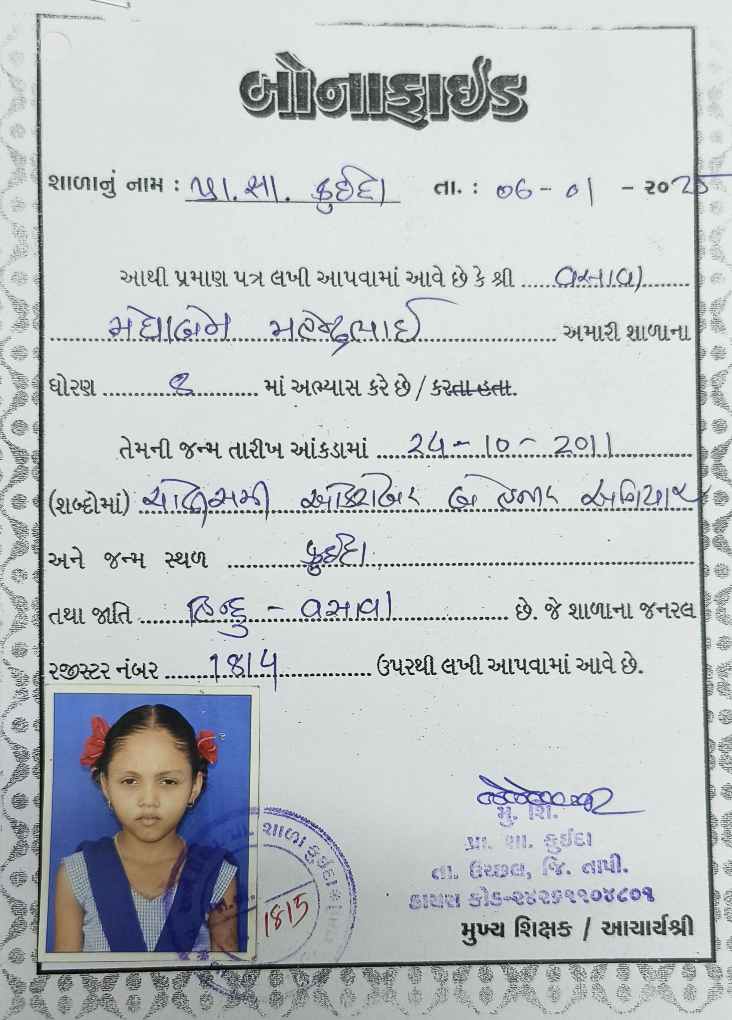 બોનાફાઈડ
શાળાનું નામ : પ્રા.શા. કુઈદા તા. : ૦6 - ૦1 - ૨૦25
આથી પ્રમાણ પત્ર લખી આપવામાં આવે છે કે શ્રી ..... વસાવા
મેઘાબેન મહેન્દ્રભાઈ અમારી શાળાના
ધોરણ ........ 8 ........ માં અભ્યાસ કરે છે / કરતા હતા.
તેમની જન્મ તારીખ આંકડામાં ... 24 - 10 - 2011
(શબ્દોમાં) ચોવીસમી ઓક્ટોબર બે હજાર અગિયાર
અને જન્મ સ્થળ ........ કુઈદા ........
તથા જાતિ ...... હિન્દુ - વસાવા ...... છે. જે શાળાના જનરલ
રજીસ્ટર નંબર ...... 1814 ...... ઉપરથી લખી આપવામાં આવે છે.
મુ. શિ.
પ્રા. શા. કુઈદા
તા. ઉચ્છલ, જિ. તાપી.
ડાયસ કોડ-૨૪૨૬૧૧૦૪૮૦૧
મુખ્ય શિક્ષક / આચાર્યશ્રી
પ્રા. શાળા કુઈદા
1815